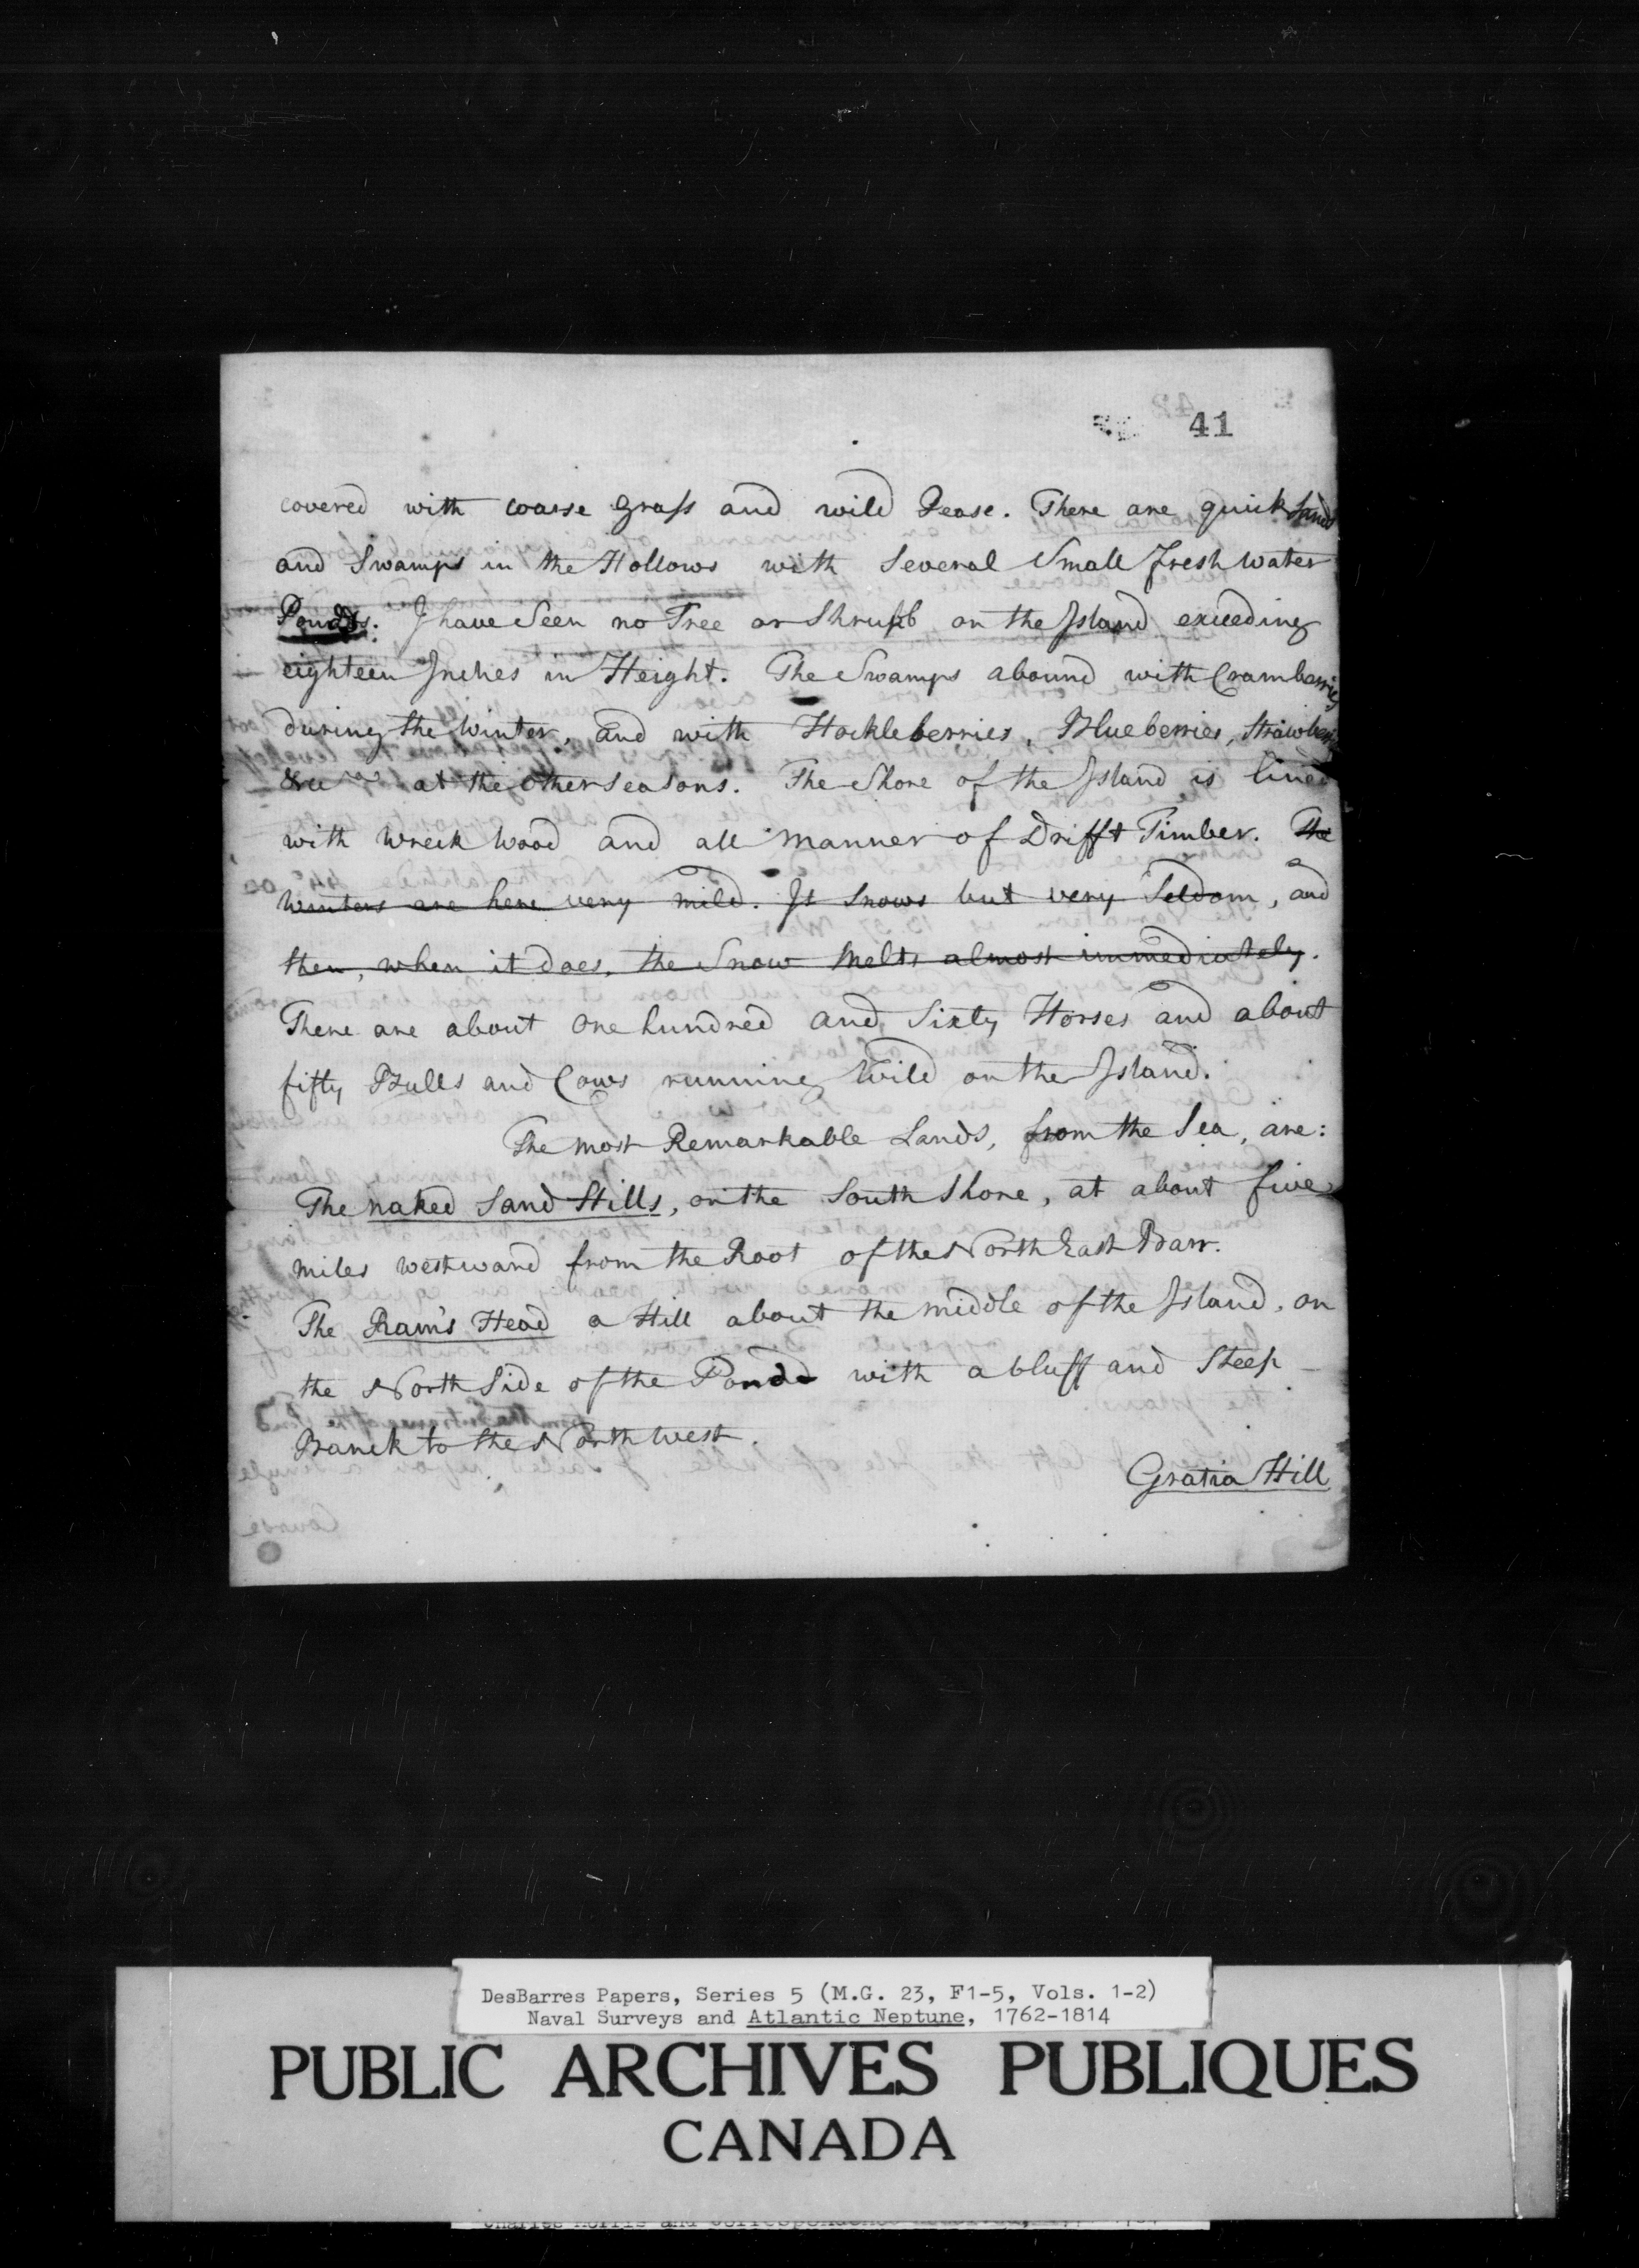 41
covered with coarse Grass and wild Pease. There are quick sands
and Swamps in the Hollows with Several Small fresh water
Ponds. I have Seen no Tree or Shrubb on the Island exceeding
eighteen Inches in Height. The Swamps abound with Cramberries
during the Winter, and with Hockleberries, Blueberries, Strawberries
at the other seasons. The Shore of the Island is lined
with wreck wood and all manner of Drifft Timber. The
winters are here very mild. It Snows but very Seldom, and
then, when it does, the Snow melts almost immediately.
There are about one hundred and Sixty Horses and about
fifty Bulls and Cows running Wild on the Island.
The most Remarkable Lands, from the Sea, are:
The naked Sand Hills, on the South Shore, at about five
miles westward from the Root of the North East Barr.
The Ram's Head a Hill about the middle of the Island, on
the North Side of the Pond with a bluff and Steep
Banck to the North west.
Gratia Hill
DesBarres Papers, Series 5 (M.G. 23, F1-5, Vols. 1-2)
Naval Surveys and Atlantic Neptune, 1762-1814
PUBLIC ARCHIVES PUBLIQUES
CANADA